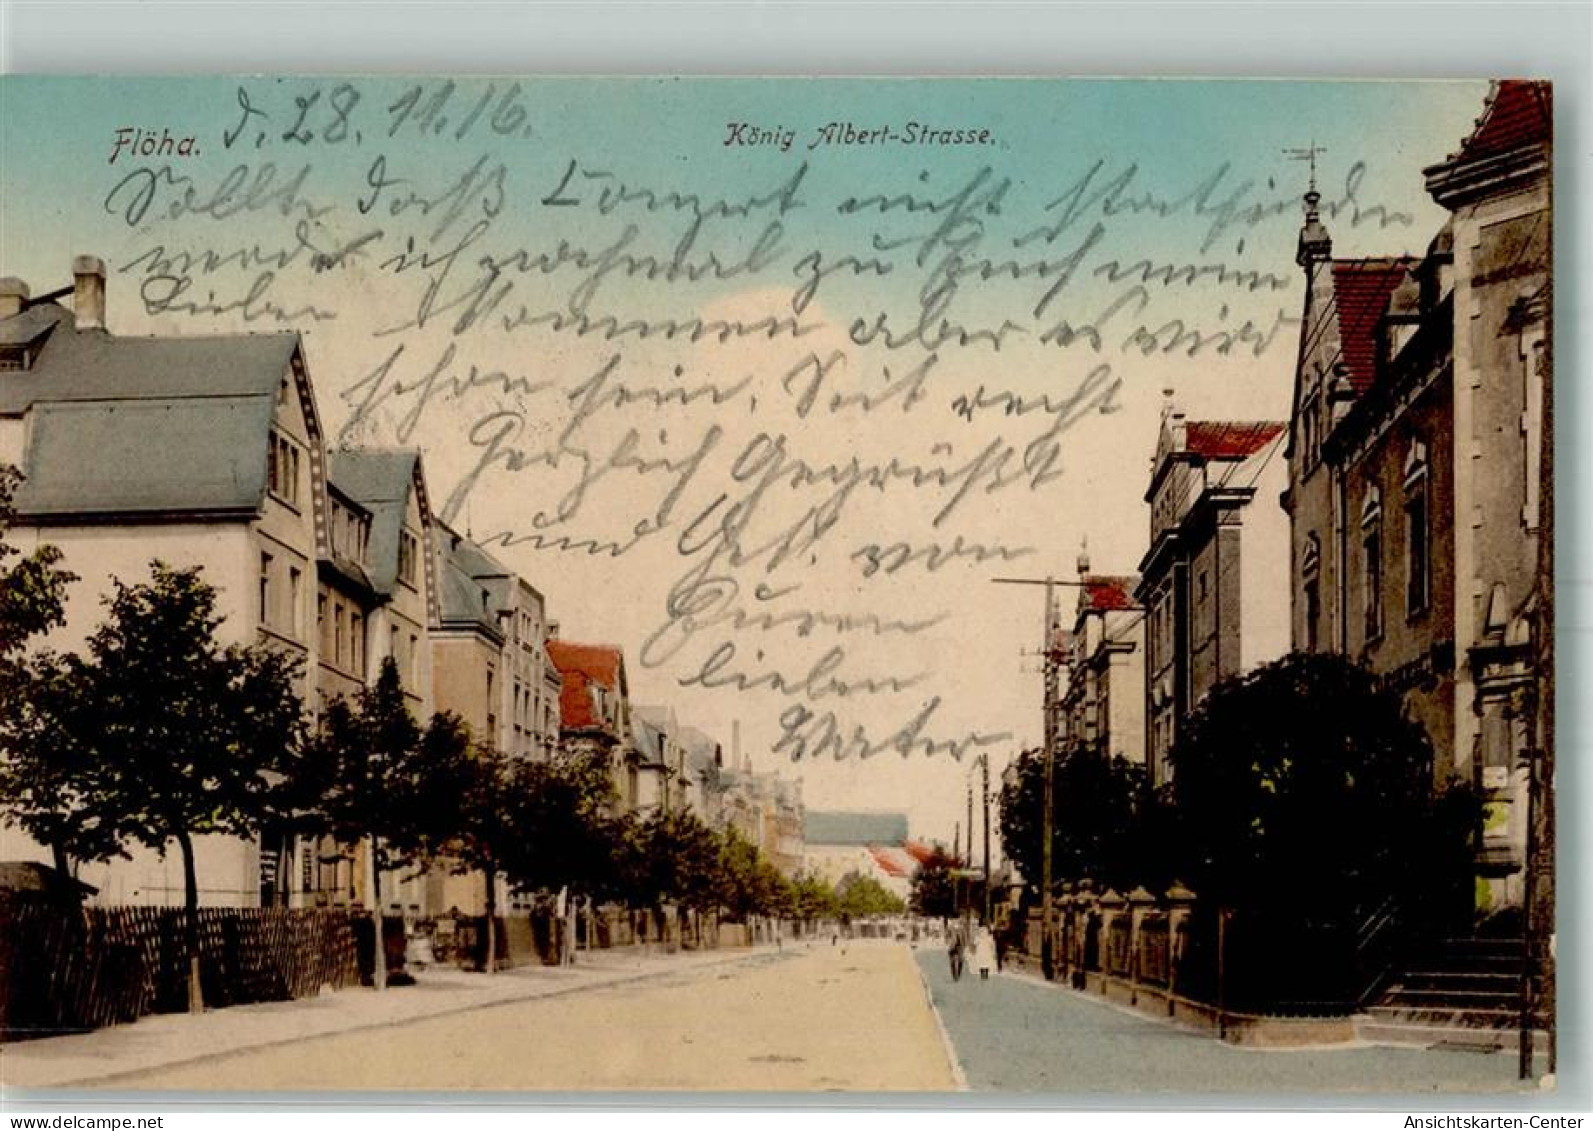 Flöha. d. 28. 11. 16.
König Albert-Strasse.
Sollte daß Conzert nicht stattfinden
werde ich nochmal zu Euch meine
Lieben kommen aber es wird
schon sein. Seit recht
Herzlich Gegrüßt
und Gek. von
Euren
lieben
Vater
Ansichtskarten-Center